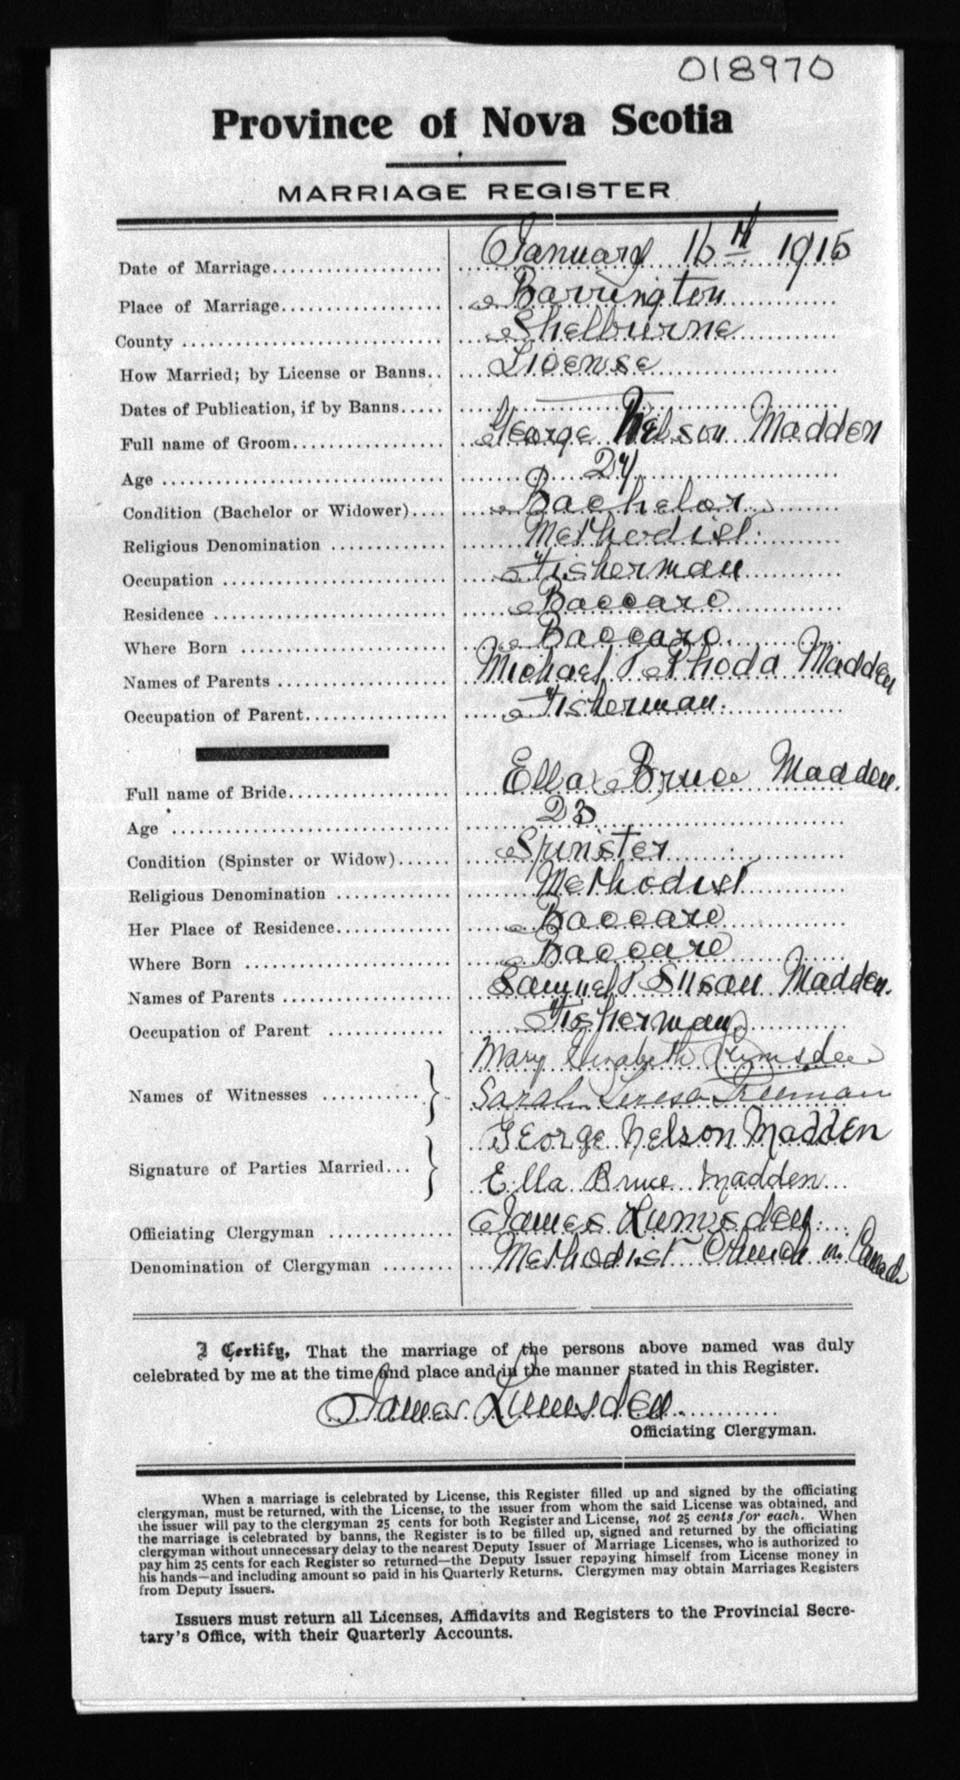 018970
Province of Nova Scotia
MARRIAGE REGISTER
Date of Marriage.................... January 16th 1915
Place of Marriage.................... Barrington
County .................... Shelburne
How Married; by License or Banns.. License
Dates of Publication, if by Banns..... —
Full name of Groom.................... George Nelson Madden
Age ....................
Condition (Bachelor or Widower).... Bachelor
Religious Denomination .............. Methodist.
Occupation .................... Fisherman
Residence .................... Baccaro
Where Born .................... Baccaro.
Names of Parents .................... Michael & Rhoda Madden
Occupation of Parent................ Fisherman.
Full name of Bride.................... Ella Bruce Madden.
Age .................... 23
Condition (Spinster or Widow)...... Spinster
Religious Denomination .............. Methodist
Her Place of Residence.............. Baccaro
Where Born .................... Baccaro
Names of Parents .................... Samuel & Susan Madden.
Occupation of Parent .............. Fisherman
Mary Elizabeth Lumsden
Names of Witnesses ............ } Sarah Teresa Freeman
George Nelson Madden
Signature of Parties Married... } Ella Bruce Madden
Officiating Clergyman .............. James Lumsden.
Denomination of Clergyman ........ Methodist Church in Canada
I Certify, That the marriage of the persons above named was duly
celebrated by me at the time and place and in the manner stated in this Register.
James Lumsden
Officiating Clergyman.
When a marriage is celebrated by License, this Register filled up and signed by the officiating
clergyman, must be returned, with the License, to the issuer from whom the said License was obtained, and
the issuer will pay to the clergyman 25 cents for both Register and License, not 25 cents for each. When
the marriage is celebrated by banns, the Register is to be filled up, signed and returned by the officiating
clergyman without unnecessary delay to the nearest Deputy Issuer of Marriage Licenses, who is authorized to
pay him 25 cents for each Register so returned—the Deputy Issuer repaying himself from License money in
his hands—and including amount so paid in his Quarterly Returns. Clergymen may obtain Marriages Registers
from Deputy Issuers.
Issuers must return all Licenses, Affidavits and Registers to the Provincial Secre-
tary's Office, with their Quarterly Accounts.